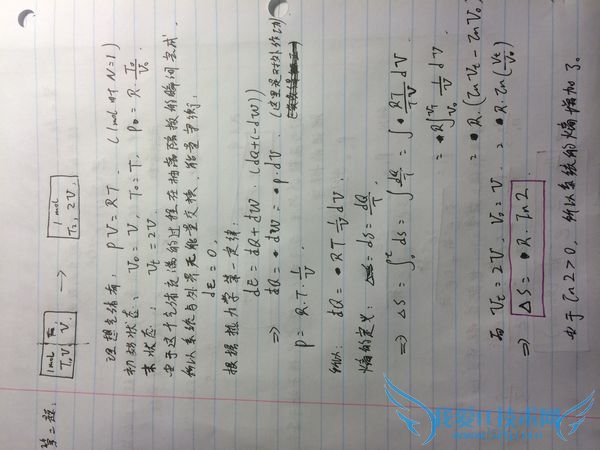 第二题：
1mol T, V
真空 V
→
1mol T₂, 2V
理想气体有， PV = RT. (1mol 时 N=1)
初始状态： V₀ = V, T₀ = T, P₀ = R·T₀/V₀
末状态： Vt = 2V
由于这个气体充满的过程在抽离隔板的瞬间完成
所以系统与外界无能量交换，能量守恒
dE = 0.
根据热力学第一定律：
dE = dQ + dW. (dQ+(-dW))
⇒ dQ = dW = P·dV. (这里是对外作功)
P = R·T·1/V
所以： dQ = RT 1/V dV.
熵的定义： dS = dQ/T
⇒ ΔS = ∫₀ᵗ dS = ∫ dQ/T = ∫ RT/TV dV
= R∫ᵥ₀ⱽᵗ 1/V dV
= R·(ln Vt − ln V₀)
而 Vt = 2V, V₀ = V. = R·ln(Vt/V₀)
⇒ ΔS = R·ln2.
由于 ln2 > 0, 所以系统的熵增加了。